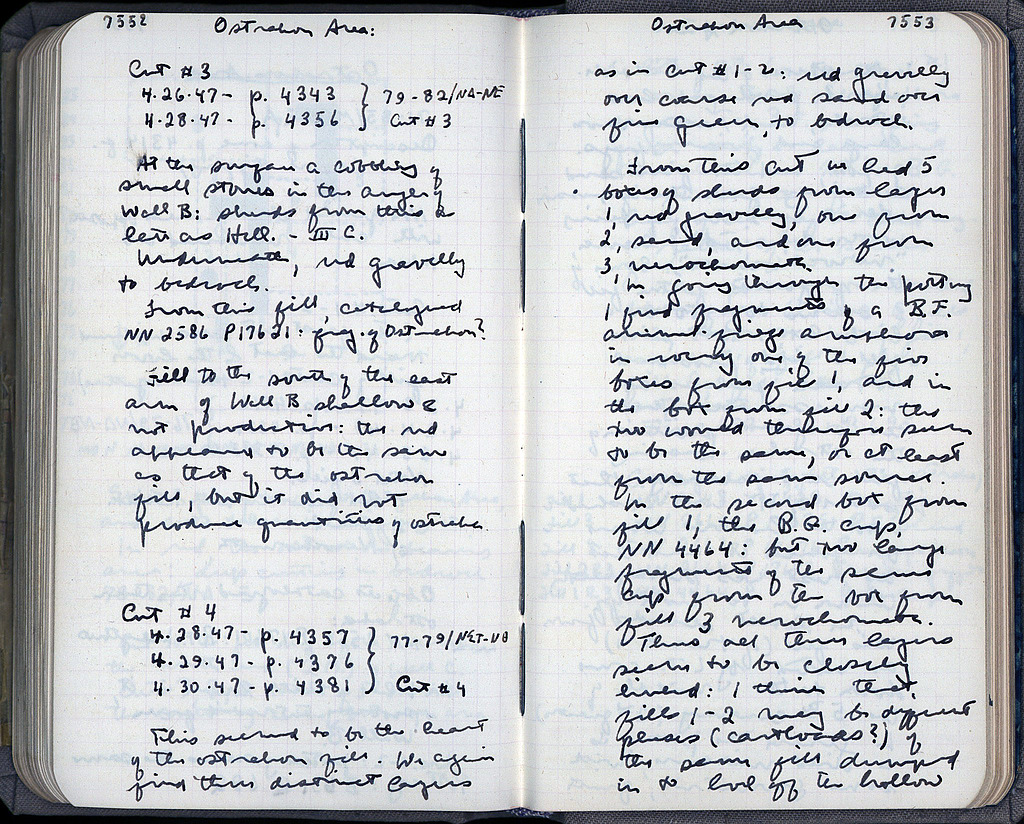 7552
Ostrakon Area:
Cut #3
4.26.47 - p. 4343 } 79-82/ΝΑ-ΝΕ
4.28.47 - p. 4356 } Cut #3
At the surface a cobbling of
small stones in the angle of
Wall B: sherds from this a
late as Hell. - III C.
Underneath, red gravelly
to bedrock.
From this fill, catalogued
NN 2586 P17621: frg. of Ostrakon?
Fill to the south of the east
arm of Wall B shallow &
not productive: the red
appeared to be the same
as that of the ostrakon
fill, but it did not
produce quantities of ostraka.
Cut #4
4.28.47 - p. 4357 } 77-79/ΝΣΤ-ΝΘ
4.29.47 - p. 4376
4.30.47 - p. 4381 } Cut #4
This seemed to be the heart
of the ostrakon fill. We again
find three distinct layers
Ostrakon Area
7553
as in Cut #1-2: red gravelly
over coarse red sand over
fine green, to bedrock.
From this cut we had 5
boxes of sherds from layer
1, red gravelly, one from
2, sand, and one from
3,
In going through the pottery
I find fragments of a B.F.
animal frieze amphora
in nearly one of the five
boxes from fill 1, and in
the box from fill 2: the
two would therefore seem
to be the same, or at least
from the same source.
In the second box from
fill 1, the B.G. cup,
NN 4464: but two large
fragments of the same
cup from the box from
fill 3
Thus all three layers
seem to be closely
linked: I think that
fills 1-2 may be different
phases (cartloads?) of
the same fill dumped
in to level off the hollow